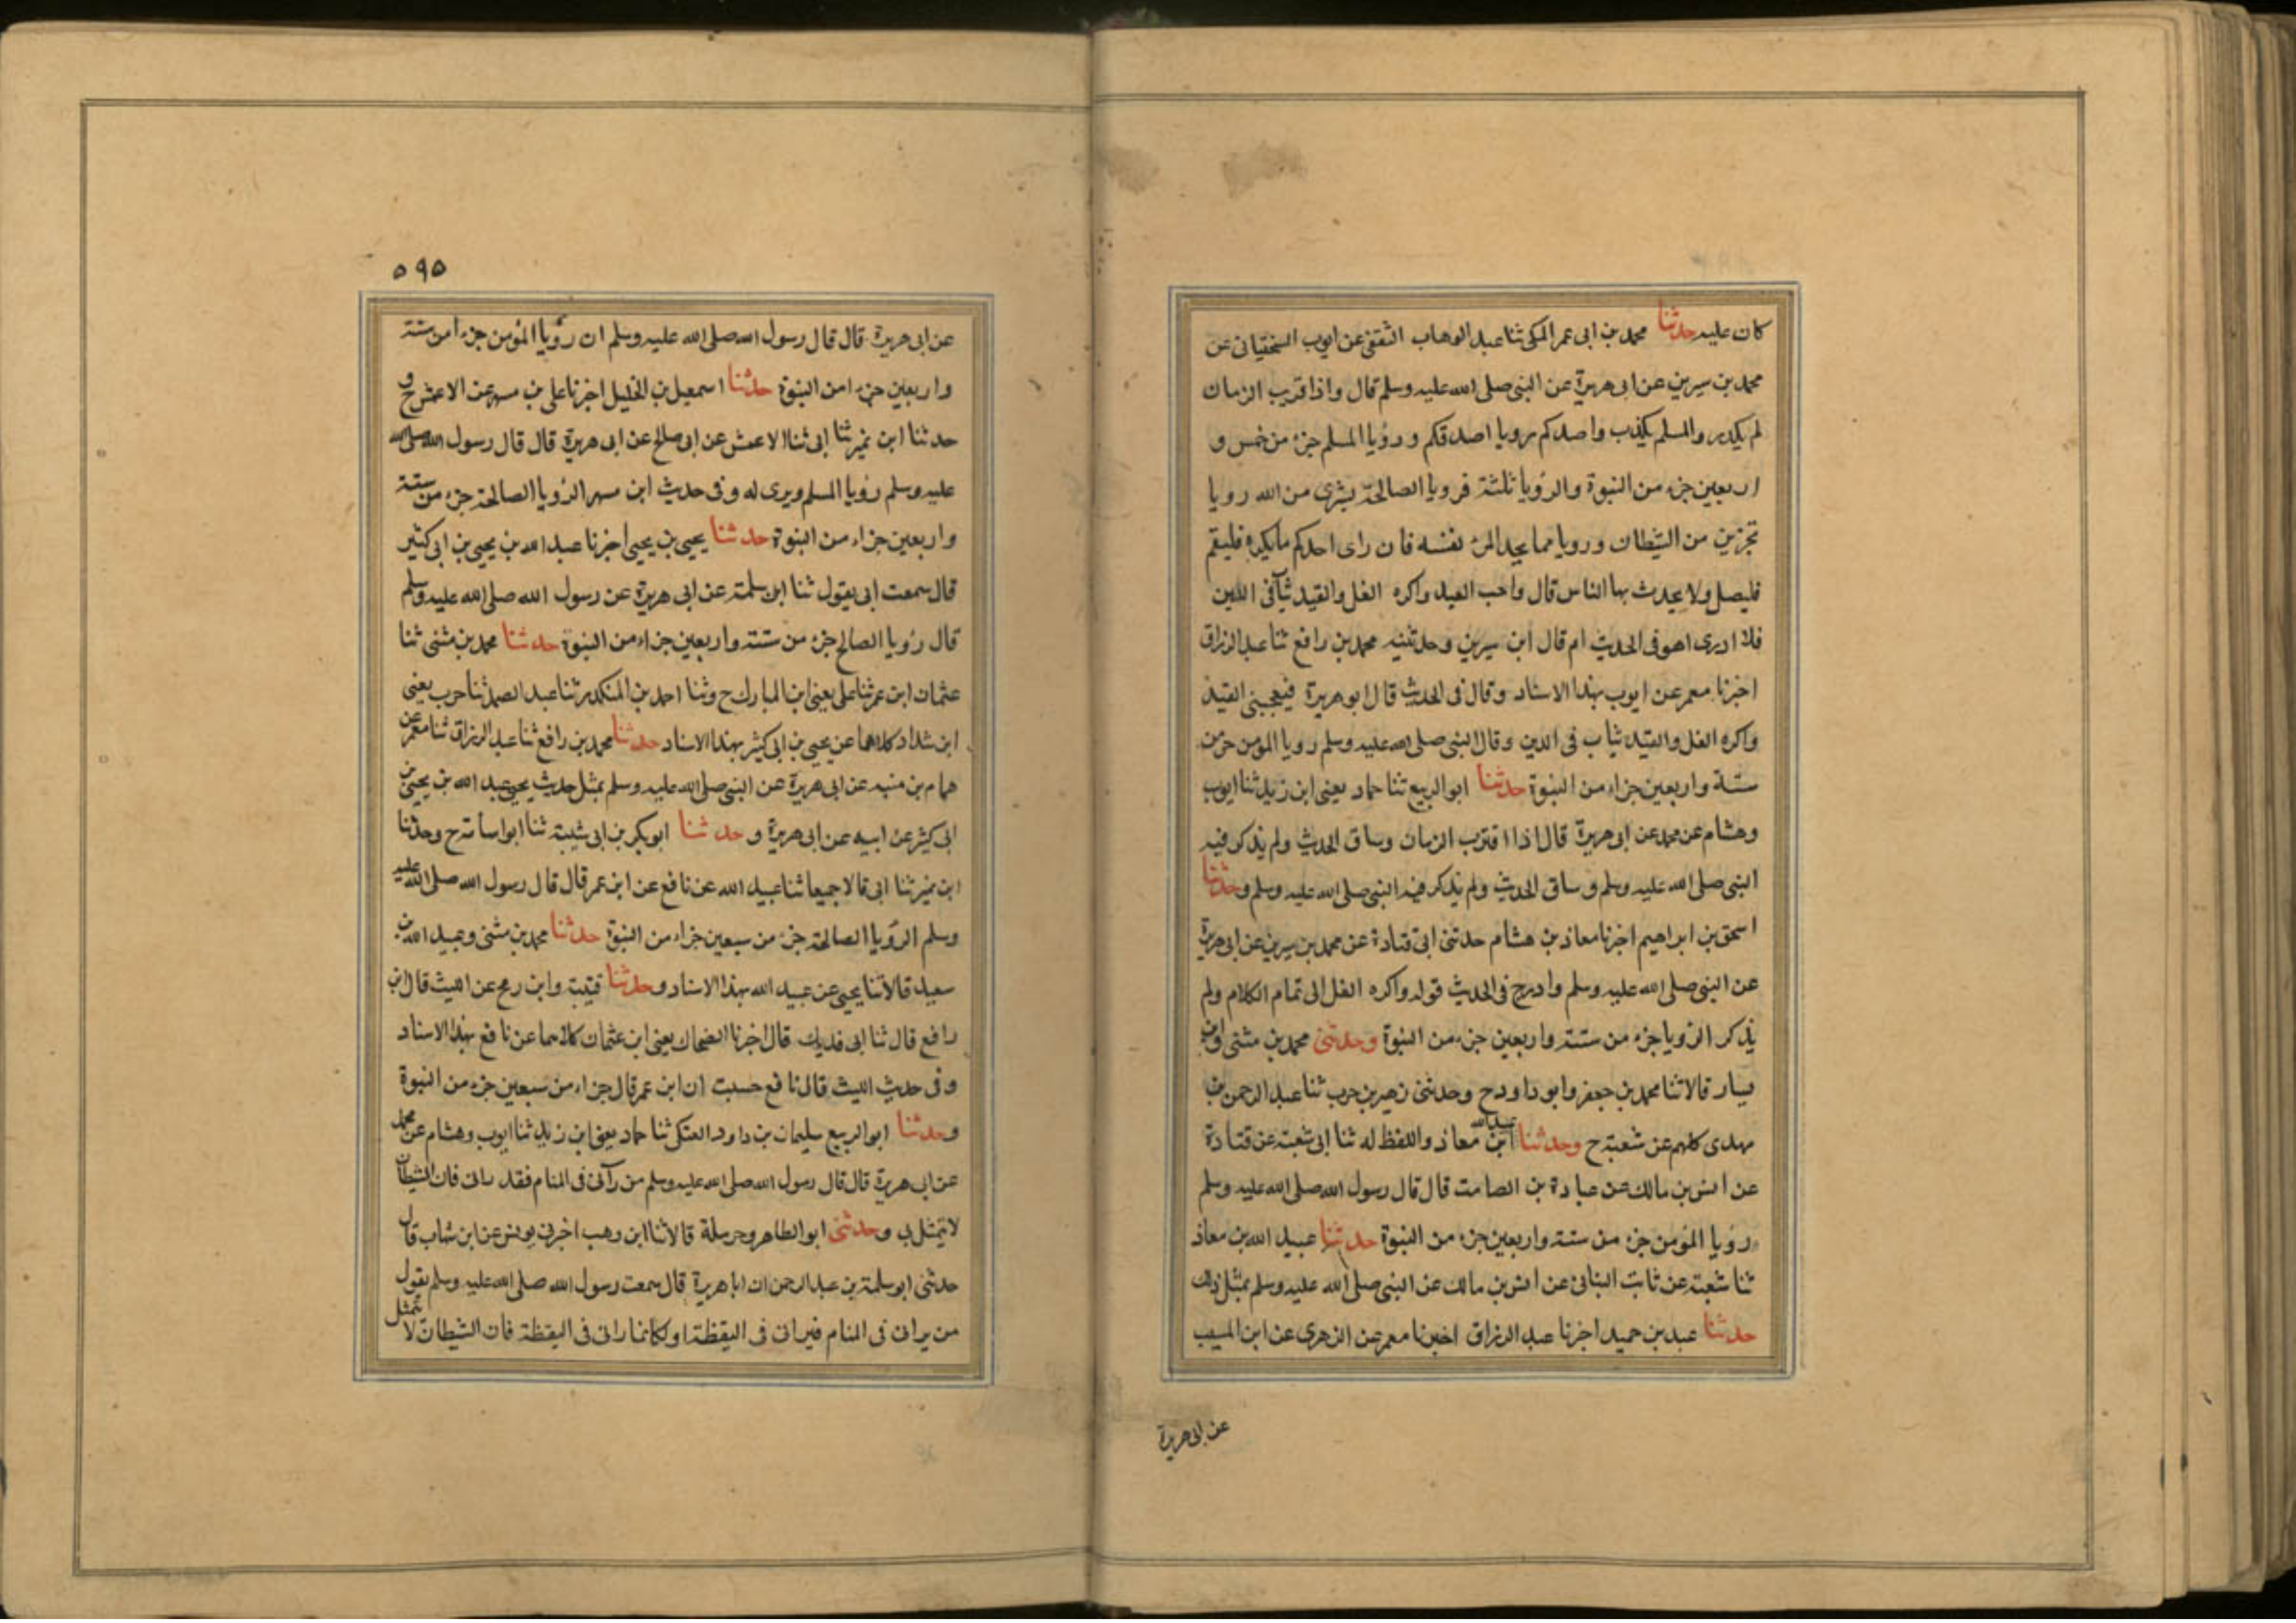 كان عليه حدثنا محمد بن ابى عمر المكى ثنا عبد الوهاب الثقفى عن ايوب السختيانى عن
محمد بن سيرين عن ابى هريرة عن النبى صلى الله عليه وسلم قال واذا قرب الزمان
لم يكد رويا المسلم يكذب واصدكم رويا اصدقكم ورؤيا المسلم جزء من خمس و
اربعين جزء من النبوة والرؤيا ثلثة فرويا الصالحة بشرى من الله رويا
تحزين من الشيطان ورويا مما يجد المرء نفسه فان راى احدكم ما يكره فليقم
فليصل ولا يحدث بها الناس قال واحب القيد واكره الغل والقيد ثبات فى الدين
فلا ادرى اهو فى الحديث ام قال ابن سيرين وحدثنيه محمد بن رافع ثنا عبد الرزاق
اخبرنا معمر عن ايوب بهذا الاسناد وقال فى الحديث قال ابو هريرة فيعجبنى القيد
واكره الغل والقيد ثبات فى الدين وقال النبى صلى الله عليه وسلم رويا المؤمن جزء من
ستة واربعين جزاء من النبوة حدثنا ابو الربيع ثنا حماد يعنى ابن زيد ثنا ايوب
وهشام عن محمد عن ابى هريرة قال اذا اقترب الزمان وساق الحديث ولم يذكر فيه
النبى صلى الله عليه وسلم وساق الحديث ولم يذكر فيه النبى صلى الله عليه وسلم وحدثنا
اسحق بن ابراهيم اخبرنا معاذ بن هشام حدثنى ابى قتادة عن محمد بن سيرين عن ابى هريرة
عن النبى صلى الله عليه وسلم وادرج فى الحديث قوله واكره الغل الى تمام الكلام ولم
يذكر الرويا جزء من ستة واربعين جزء من النبوة وحدثنى محمد بن مثنى وابن
بسار قالا ثنا محمد بن جعفر وابو داود ح وحدثنى زهير بن حرب ثنا عبد الرحمن بن
مهدى كلهم عن شعبة ح وحدثنا عبيد الله ابن معاذ واللفظ له ثنا ابى شعبة عن قتادة
عن انس بن مالك عن عبادة بن الصامت قال قال رسول الله صلى الله عليه وسلم
رؤيا المؤمن جزء من ستة واربعين جزء من النبوة حدثنا عبيد الله بن معاذ
ثنا شعبة عن ثابت البنانى عن انس بن مالك عن النبى صلى الله عليه وسلم بمثل ذلك
حدثنا عبد بن حميد اخبرنا عبد الرزاق اخبرنا معمر عن الزهرى عن ابن المسيب
عن ابى هريرة
٥٩٥
عن ابى هريرة قال قال رسول الله صلى الله عليه وسلم ان رؤيا المؤمن جزءا من ستة
واربعين جزءا من النبوة حدثنا اسمعيل بن الخليل اخبرنا على بن مسهر عن الاعمش ح و
حدثنا ابن نمير ثنا ابى ثنا الاعمش عن ابى صالح عن ابى هريرة قال قال رسول الله صلى الله
عليه وسلم رؤيا المسلم ويرى له وفى حديث ابن مسهر الرؤيا الصالحة جزء من ستة
واربعين جزاء من النبوة حدثنا يحيى بن يحيى اخبرنا عبد الله بن يحيى بن ابى كثير
قال سمعت ابى يقول ثنا ابن سلمة عن ابى هريرة عن رسول الله صلى الله عليه وسلم
قال رؤيا الصالح جزء من ستة واربعين جزاء من النبوة حدثنا محمد بن مثنى ثنا
عثمان ابن عمر ثنا على يعنى ابن المبارك ح وثنا احمد بن المنكدر ثنا عبد الصمد ثنا حرب يعنى
ابن شداد كلاهما عن يحيى بن ابى كثير بهذا الاسناد حدثنا محمد بن رافع ثنا عبد الرزاق ثنا معمر عن
همام بن منبه عن ابى هريرة عن النبى صلى الله عليه وسلم بمثل حديث يحيى عبد الله بن يحيى بن
ابى كثير عن ابيه عن ابى هريرة وحدثنا ابو بكر بن ابى شيبة ثنا ابو اسامة ح وحدثنا
ابن نمير ثنا ابى قالا جميعا ثنا عبيد الله عن نافع عن ابن عمر قال قال رسول الله صلى الله عليه
وسلم الرؤيا الصالحة جزء من سبعين جزاء من النبوة حدثنا محمد بن مثنى وعبيد الله بن
سعيد قالا ثنا يحيى عن عبيد الله بهذا الاسناد وحدثنا قتيبة وابن رمح عن الليث قال ابن
رافع قال ثنا ابى فديك قال اخبرنا الضحاك يعنى ابن عثمان كلاهما عن نافع بهذا الاسناد
وفى حديث الليث قال نافع حسبت ان ابن عمر قال جزاء من سبعين جزء من النبوة
وحدثنا ابو الربيع سليمان بن داود العتكى ثنا حماد يعنى ابن زيد ثنا ايوب وهشام عن محمد
عن ابى هريرة قال قال رسول الله صلى الله عليه وسلم من رآنى فى المنام فقد رانى فان الشيطان
لا يتمثل بى وحدثنى ابو الطاهر وحرملة قالا ثنا ابن وهب اخبرنى يونس عن ابن شهاب قال
حدثنى ابو سلمة بن عبد الرحمن ان ابا هريرة قال سمعت رسول الله صلى الله عليه وسلم يقول
من يرانى فى المنام فيرانى فى اليقظة او لكانما رانى فى اليقظة فان الشيطان لا يتمثل